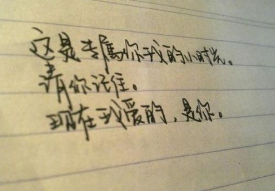 这是专属你我的小时光。
请你记住。
现在我爱的，是你。